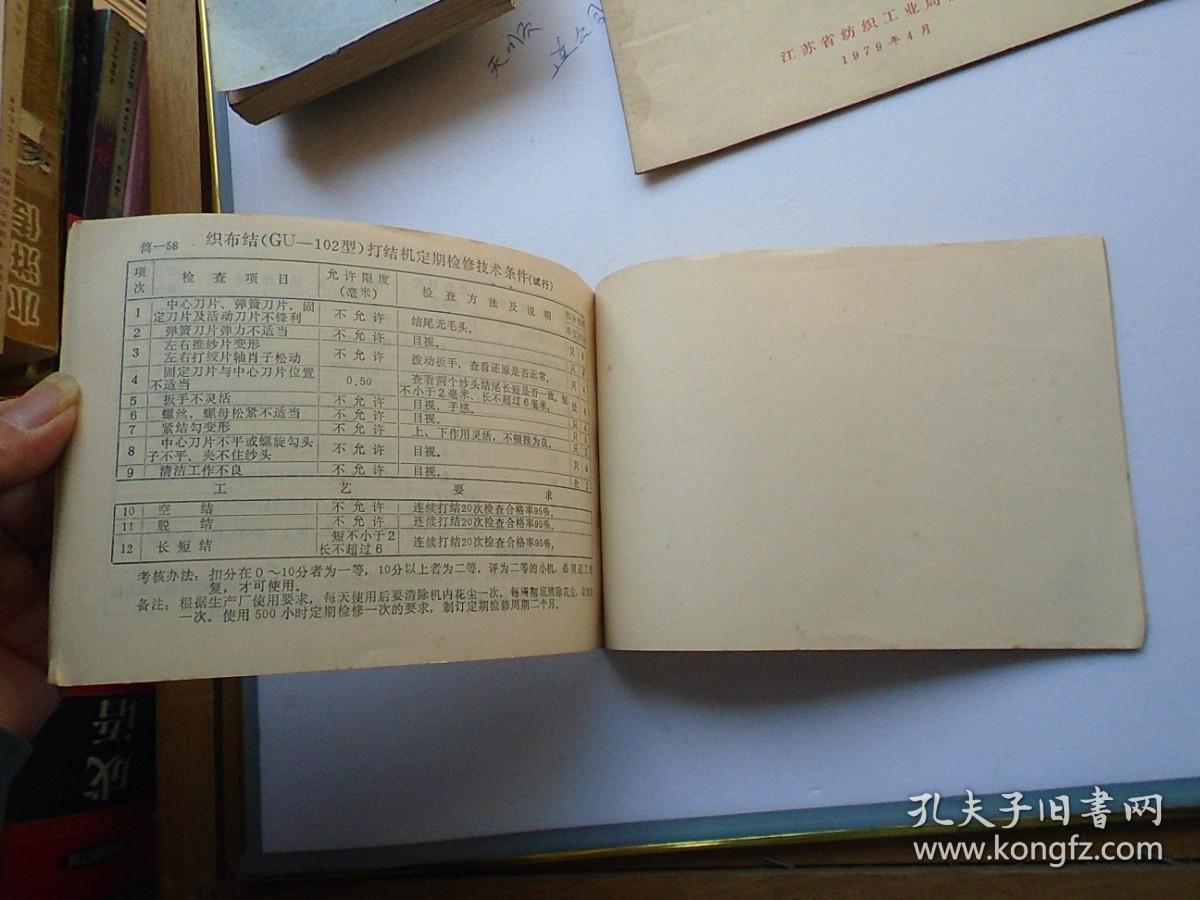 江苏省纺织工业局
1979年4月
筒—58
织布结(GU—102型)打结机定期检修技术条件(试行)
项次 检查项目 允许限度(毫米) 检查方法及说明
1 中心刀片、弹簧刀片、固定刀片及活动刀片不锋利 不允许 结尾无毛头。
2 弹簧刀片弹力不适当 不允许 目视。
3 左右推纱片变形
左右打绞片轴肖子松动 不允许 拨动扳手,查看还原是否正常。
4 固定刀片与中心刀片位置不适当 0.50 查看两个纱头结尾长短是否一致,
不小于2毫米、长不超过6毫米。
5 扳手不灵活 不允许 目视、手感。
6 螺丝、螺母松紧不适当 不允许 目视。
7 紧结勾变形 不允许 上、下作用灵活,不顿挫为良。
8 中心刀片不平或螺旋勾头子不平、夹不住纱头 不允许 目视。 只 4
9 清洁工作不良 不允许 目视。 处 2
工艺要求
10 空结 不允许 连续打结20次检查合格率95%。
11 脱结 不允许 连续打结20次检查合格率95%。
12 长短结 短不小于2
长不超过6 连续打结20次检查合格率95%。
考核办法:扣分在0～10分者为一等,10分以上者为二等。评为二等的小机,必须返工
复,才可使用。
备注:根据生产厂使用要求,每天使用后要清除机内花尘一次,每周彻底清除花尘,
一次。使用500小时定期检修一次的要求,制订定期检修周期二个月。
水浒传
成语
孔夫子旧書网
www.kongfz.com